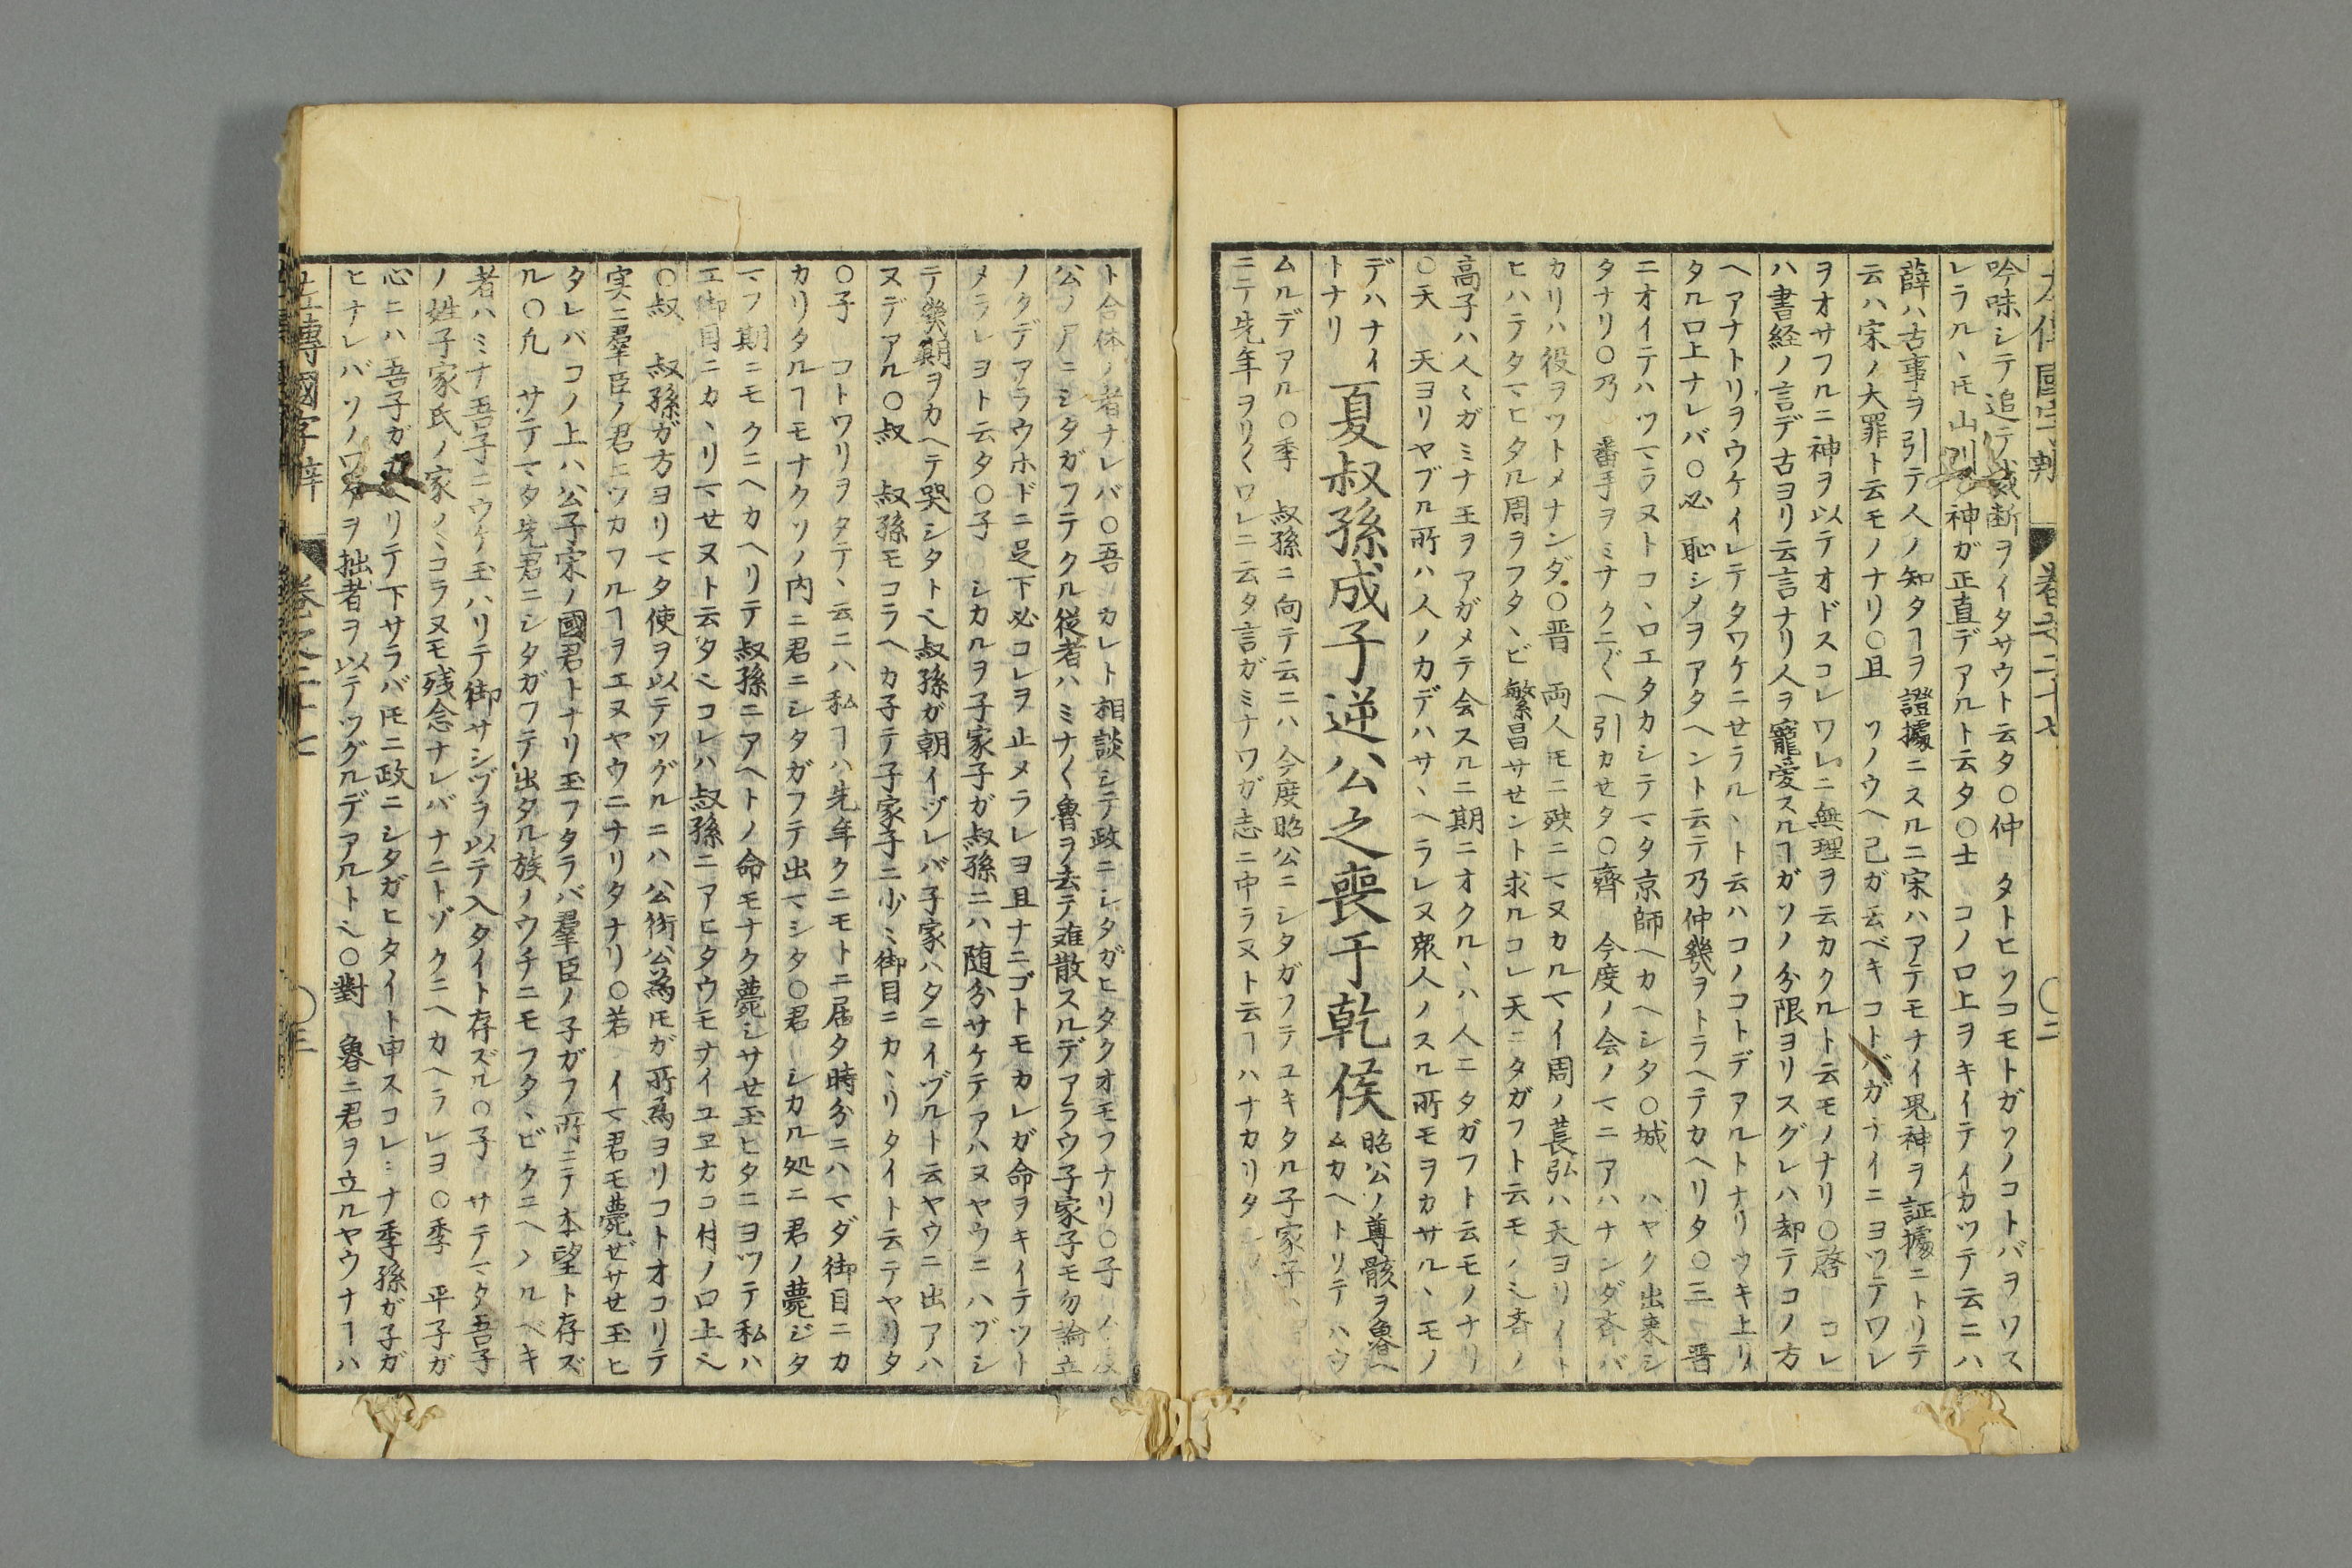 吟味シテ追テ裁断ヲイタサウト云タ〇仲　タトヒソコモトガソノコトバヲワス
レラルヽ𪜈山川ノ神ガ正直デアルト云タ〇士　コノ口上ヲキイテイカツテ云ニハ
薛ハ古事ヲ引テ人ノ知タヿヲ證據ニスルニ宋ハアテモナイ鬼神ヲ証據ニトリテ
云ハ宋ノ大罪ト云モノナリ〇且　ソノウヘ己ガ云ベキコトバガナイニヨツテワレ
ヲオサフルニ神ヲ以テオドスコレワレニ無理ヲ云カクルト云モノナリ〇啓　コレ
ハ書経ノ言デ古ヨリ云言ナリ人ヲ寵愛スルヿガソノ分限ヨリスグレハ却テコノ方
ヘアナトリヲウケイレテタワケニせラルヽト云ハコノコトデアルトナリウキ上リ
タル口上ナレバ〇必　恥シメヲアタヘント云テ乃仲幾ヲトラヘテカヘリタ〇三　晋
ニオイテハツマラヌトコヽロエタカシテマタ京師ヘカヘシタ〇城　ハヤク出来シ
タナリ〇乃　番手ヲミナクニ〴〵ヘ引カせタ〇齊　今度ノ会ノマニアハナンダ斉バ
カリハ役ヲツトメナンダ〇晋　両人𪜈ニ殃ニマヌカルマイ周ノ萇弘ハ天ヨリイト
ヒハテタマヒタル周ヲフタヽビ繁昌サせント求ルコレ天ニタガフト云モノ也斉ノ
高子ハ人〻ガミナ王ヲアガメテ会スルニ期ニオクルヽハ人ニタガフト云モノナリ
〇天　天ヨリヤブル所ハ人ノカデハサヽヘラレヌ衆人ノスル所モヲカサルヽモノ
デハナイ
トナリ
夏叔孫成子逆公之喪于乾侯
昭公ノ尊骸ヲ魯ヘ
ムカヘトリテハウ
ムルデアル〇季　叔孫ニ向テ云ニハ今度昭公ニシタガフテユキタル子家子ハ
ニテ先年ヲリ〱ワレニ云タ言ガミナワガ志ニ中ラヌト云ヿハナカリタ
卷之二十七
〇二
ト合体ノ者ナレバ〇吾　カレト相談シテ政ニシタガヒタクオモフナリ〇子
公ノアニシタガフテクル従者ハミナ〱魯ヲ去テ離散スルデアラウ子家子モ勿論立
ノクデアラウホドニ足下必コレヲ止メラレヨ且ナニゴトモカレガ命ヲキイテツト
メラレヨト云タ〇子　シカルヲ子家子ガ叔孫ニハ随分サケテアハヌヤウニハヅシ
テ幾期ヲカヘテ哭シタト也叔孫ガ朝イヅレバ子家ハタニイヅルト云ヤウニ出アハ
ヌデアル〇叔　叔孫モコラヘカ子テ子家子ニ少〻御目ニカヽリタイト云テヤリタ
〇子　コトワリヲタテヽ云ニハ私ヿハ先年クニモトニ居タ時分ニハマダ御目ニカ
カリタルヿモナクソノ内ニ君ニシタガフテ出マシタ〇君　シカル処ニ君ノ薨ジタ
マフ期ニモクニヘカヘリテ叔孫ニアヘトノ命モナク薨シサせ玉ヒタニヨツテ私ハ
エ御目ニカヽリマせヌト云タ也コレハ叔孫ニアヒタウモナイユヱカコ付ノ口上也
〇叔　叔孫ガ方ヨリマタ使ヲ以テツグルニハ公衍公為𪜈ガ所為ヨリコトオコリテ
実ニ羣臣ノ君ニツカフルヿヲエヌヤウニナリタナリ〇若　イマ君モ薨ぜサせ玉ヒ
タレバコノ上ハ公子宋ノ國君トナリ玉フタラバ羣臣ノ子ガフ所ニテ本望ト存ズ
ル〇凡　サテマタ先君ニシタガフテ出タル族ノウチニモフタヽビクニヘノルベキ
者ハミナ吾子ニウケ玉ハリテ御サシヅヲ以テ入タイト存ズル〇子　サテマタ吾子
ノ姓子家氏ノ家ノミコラヌモ残念ナレバナニトゾクニヘカヘラレヨ〇季　平子ガ
心ニハ吾子ガカヘリテ下サラバ𪜈ニ政ニシタガヒタイト申スコレミナ季孫ガ子ガ
ヒナレバソノワケヲ拙者ヲ以テツグルデアルト也〇對　魯ニ君ヲ立ルヤウナヿハ
左傳國字辯
卷之二十七
〇三